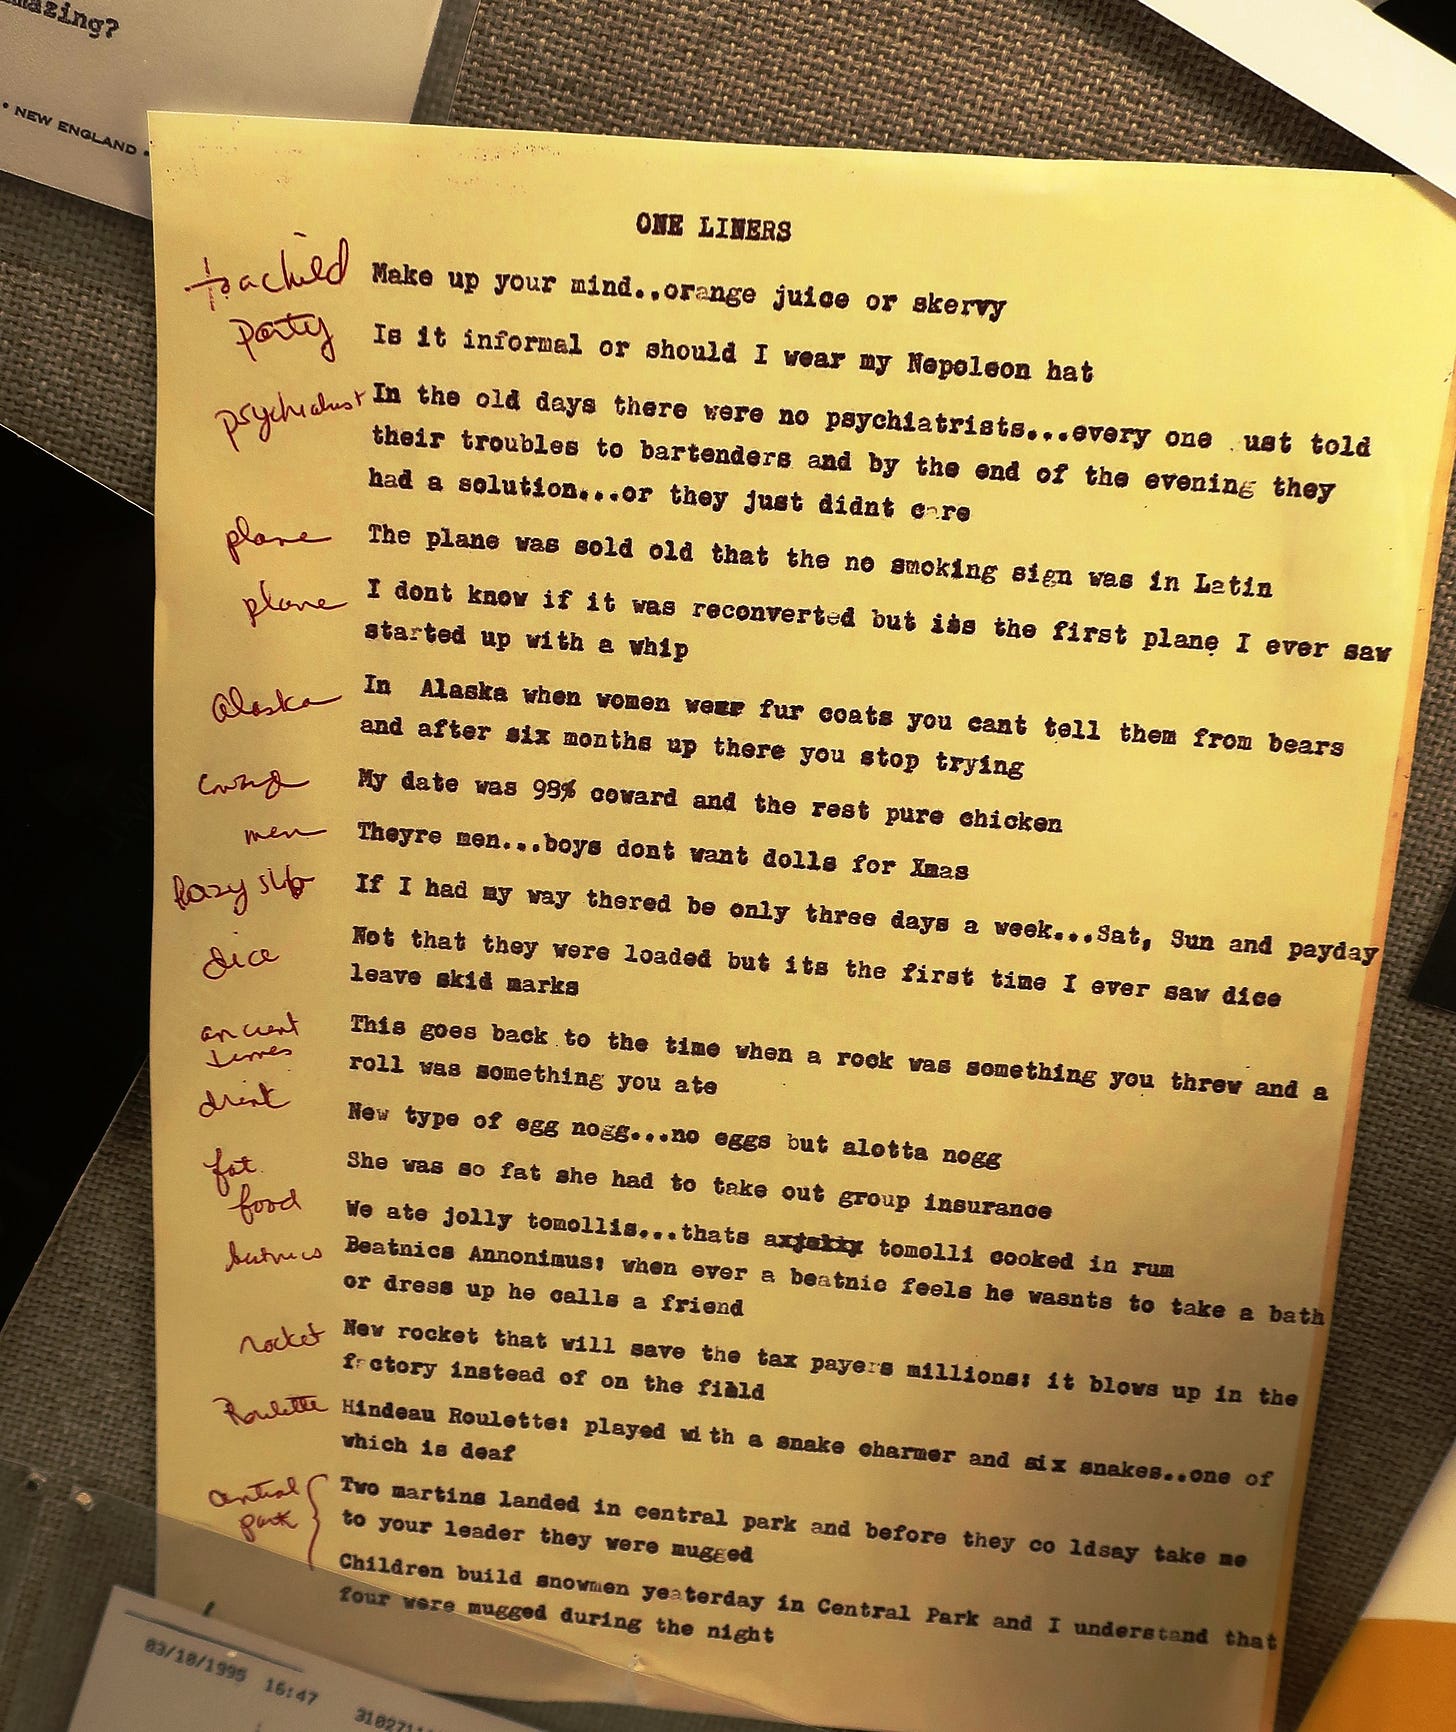 mazing?
• NEW ENGLAND •
ONE LINERS
to a child Make up your mind..orange juice or skervy
party Is it informal or should I wear my Nepoleon hat
psychiatrist In the old days there were no psychiatrists...every one ust told
their troubles to bartenders and by the end of the evening they
had a solution...or they just didnt care
plane The plane was sold old that the no smoking sign was in Latin
plane I dont know if it was reconverted but its the first plane I ever saw
started up with a whip
Alaska In Alaska when women wear fur coats you cant tell them from bears
and after six months up there you stop trying
My date was 98% coward and the rest pure chicken
men Theyre men...boys dont want dolls for Xmas
If I had my way thered be only three days a week...Sat, Sun and payday
dice Not that they were loaded but its the first time I ever saw dice
leave skid marks
ancient This goes back to the time when a rock was something you threw and a
times roll was something you ate
drink New type of egg nogg...no eggs but alotta nogg
fat She was so fat she had to take out group insurance
food We ate jolly tomollis...thats tomolli cooked in rum
beatnics Beatnics Annonimus: when ever a beatnic feels he wasnts to take a bath
or dress up he calls a friend
rocket New rocket that will save the tax payers millions: it blows up in the
factory instead of on the field
Roulette Hindeau Roulette: played with a snake charmer and six snakes..one of
which is deaf
central Two martins landed in central park and before they co ldsay take me
park to your leader they were mugged
Children build snowmen yeaterday in Central Park and I understand that
four were mugged during the night
03/10/1995 16:47